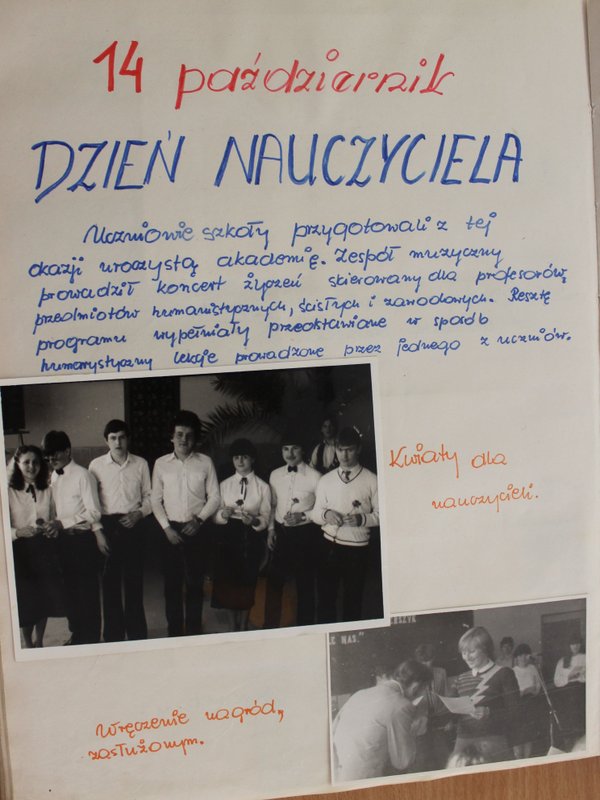 14 październik
DZIEŃ NAUCZYCIELA
Uczniowie szkoły przygotowali z tej
okazji uroczystą akademię. Zespół muzyczny
prowadził koncert życzeń skierowany dla profesorów,
przedmiotów humanistycznych, ścisłych i zawodowych. Resztę
programu wypełniały przedstawiane w sposób
humorystyczny lekcje prowadzone przez jednego z uczniów.
Kwiaty dla
nauczycieli.
NAS."
Wręczenie nagród,
zasłużonym.